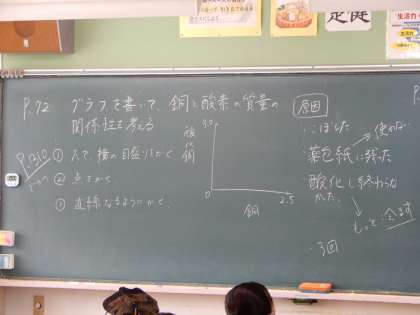 P.72 グラフを書いて、銅と酸素の質量の
関係性を考える
P.210
① たて、横の目盛りをかく
② 点をかく、
③ 直線になるようにかく、
酸化銅
3.0
0
2.5
銅
原因
・こぼした
使わない
・薬包紙に残った
・酸化し終わらなかった。
もっと
・3回
足健
生活力